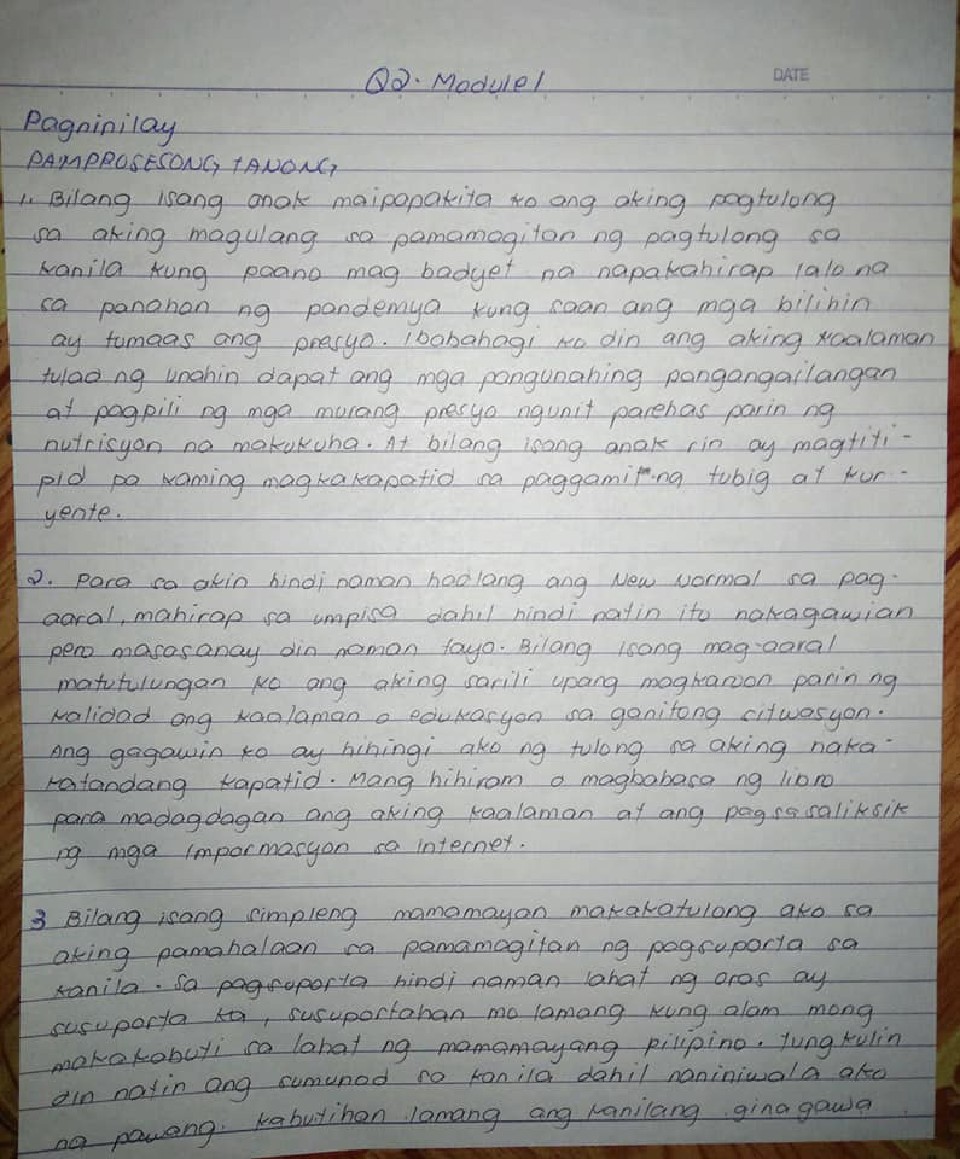 Q2. Module 1
DATE
Pagninilay
PAMPROSESONG TANONG
1. Bilang isang anak maipapakita ko ang aking pagtulong
sa aking magulang sa pamamagitan ng pagtulong sa
kanila kung paano mag badyet na napakahirap lalo na
sa panahon ng pandemya kung saan ang mga bilihin
ay tumaas ang presyo. Ibabahagi ko din ang aking kaalaman
tulad ng unahin dapat ang mga pangunahing pangangailangan
at pagpili ng mga murang presyo ngunit parehas parin ng
nutrisyon na makukuha. At bilang isang anak rin ay magtiti-
pid po kaming magkakapatid sa paggamit ng tubig at kur-
yente.
2. Para sa akin hindi naman hadlang ang New Normal sa pag-
aaral, mahirap sa umpisa dahil hindi natin ito nakagawian
pero masasanay din naman tayo. Bilang isang mag-aaral
matutulungan ko ang aking sarili upang magkaroon parin ng
kalidad ang kaalaman o edukasyon sa ganitong citwasyon.
Ang gagawin ko ay hihingi ako ng tulong sa aking naka-
katandang kapatid. Mang hihiram o magbabasa ng libro
para madagdagan ang aking kaalaman at ang pagsasaliksik
ng mga impormasyon sa internet.
3 Bilang isang simpleng mamamayan makakatulong ako sa
aking pamahalaan sa pamamagitan ng pagsuporta sa
kanila. Sa pagsuporta hindi naman lahat ng oras ay
susuporta ka, susuportahan mo lamang kung alam mong
makakabuti sa lahat ng mamamayang pilipino. Tungkulin
din natin ang sumunod sa kanila dahil naniniwala ako
na pawang kabutihan lamang ang kanilang ginagawa